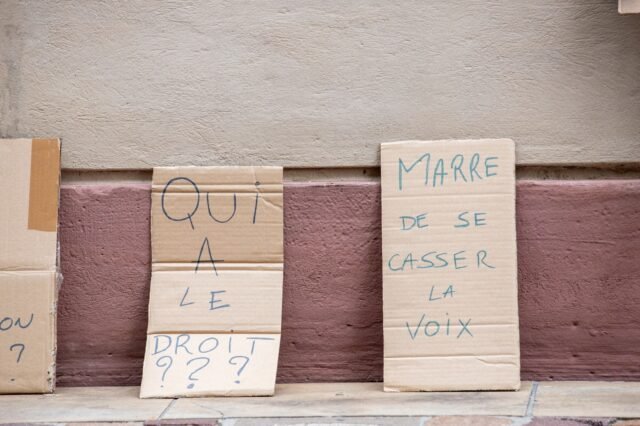 ON
?
QUI
A
LE
DROIT
???
MARRE
DE SE
CASSER
LA
VOIX